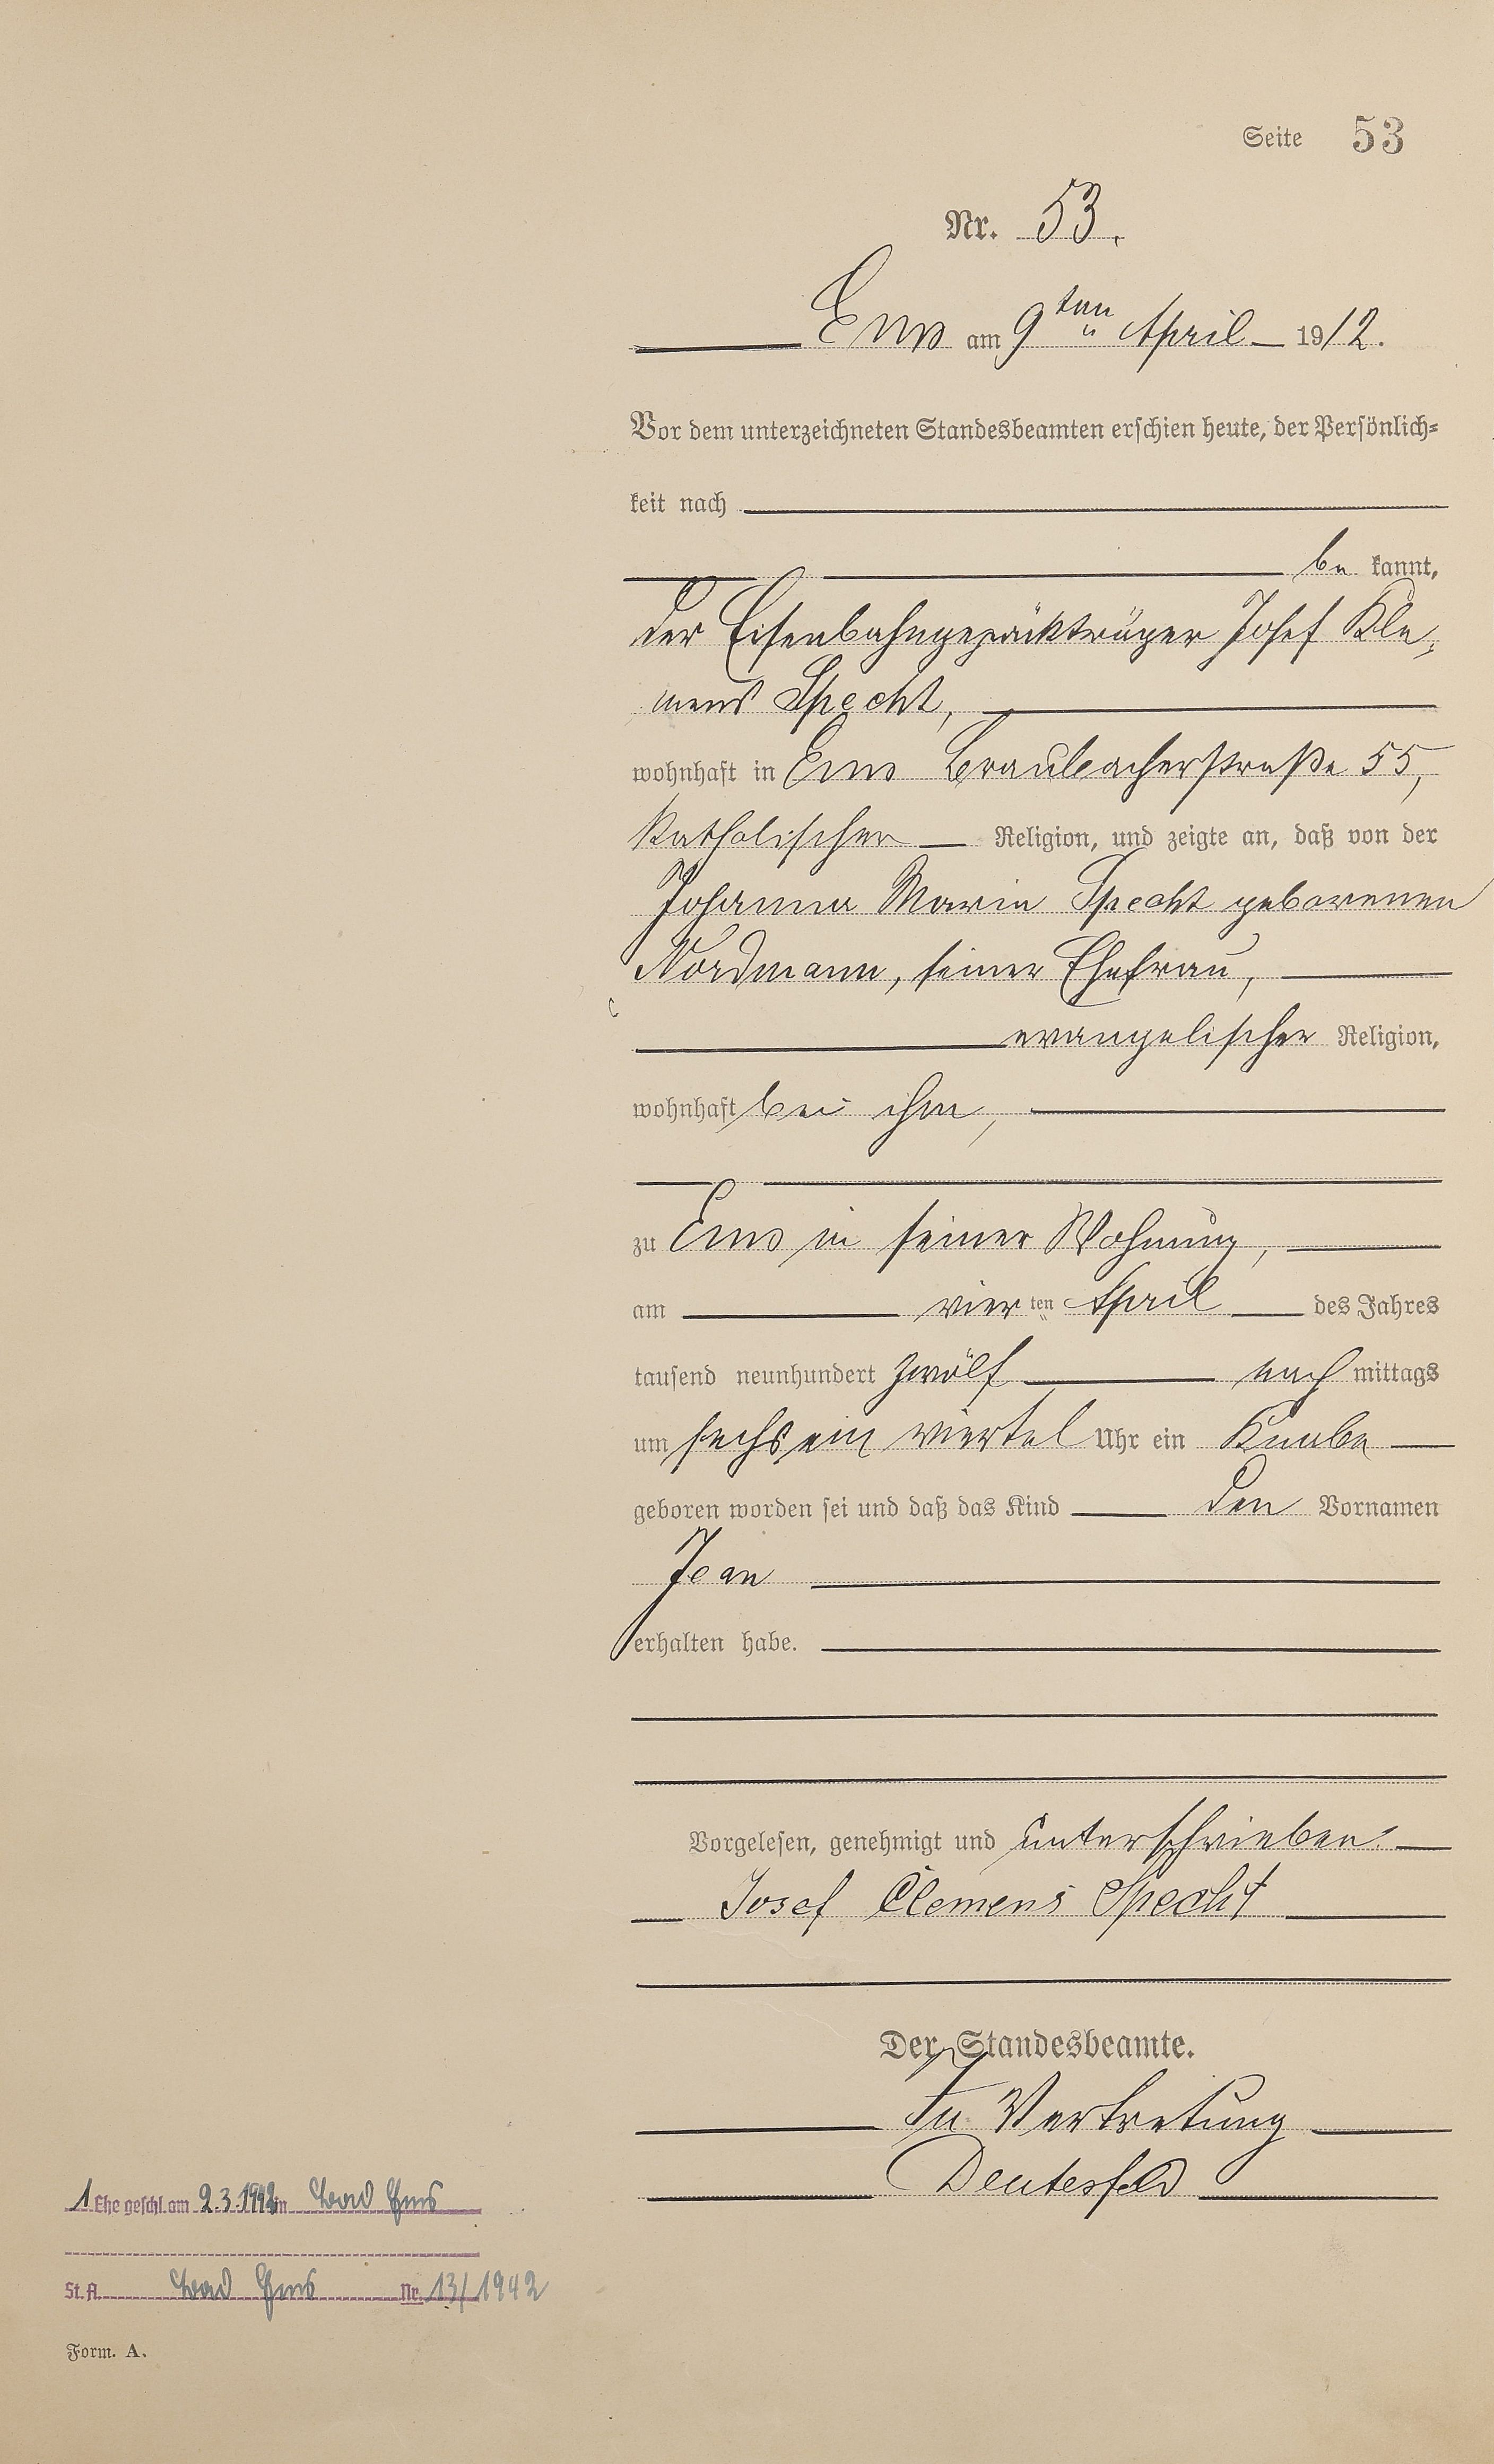 Seite 53
Nr. 53.
Ems am 9ten April 1912.
Vor dem unterzeichneten Standesbeamten erschien heute, der Persönlich-
keit nach
be kannt,
der Eisenbahngepäckträger Josef Kle-
mens Specht,
wohnhaft in Ems Braubacherstraße 55,
katholischer Religion, und zeigte an, daß von der
Johanna Maria Specht geborenen
Nordmann, seiner Ehefrau,
evangelischer Religion,
wohnhaft bei ihm,
zu Ems in seiner Wohnung,
am vier ten April des Jahres
tausend neunhundert zwölf nach mittags
um sechs ein viertel Uhr ein Knabe
geboren worden sei und daß das Kind den Vornamen
Jean
erhalten habe.
Vorgelesen, genehmigt und unterschrieben.
Josef Clemens Specht
Der Standesbeamte.
In Vertretung
Deutesfeld
1 Ehe geschl. am 2.3.1942 in Bad Ems
St. A. Bad Ems Nr. 13/1942
Form. A.